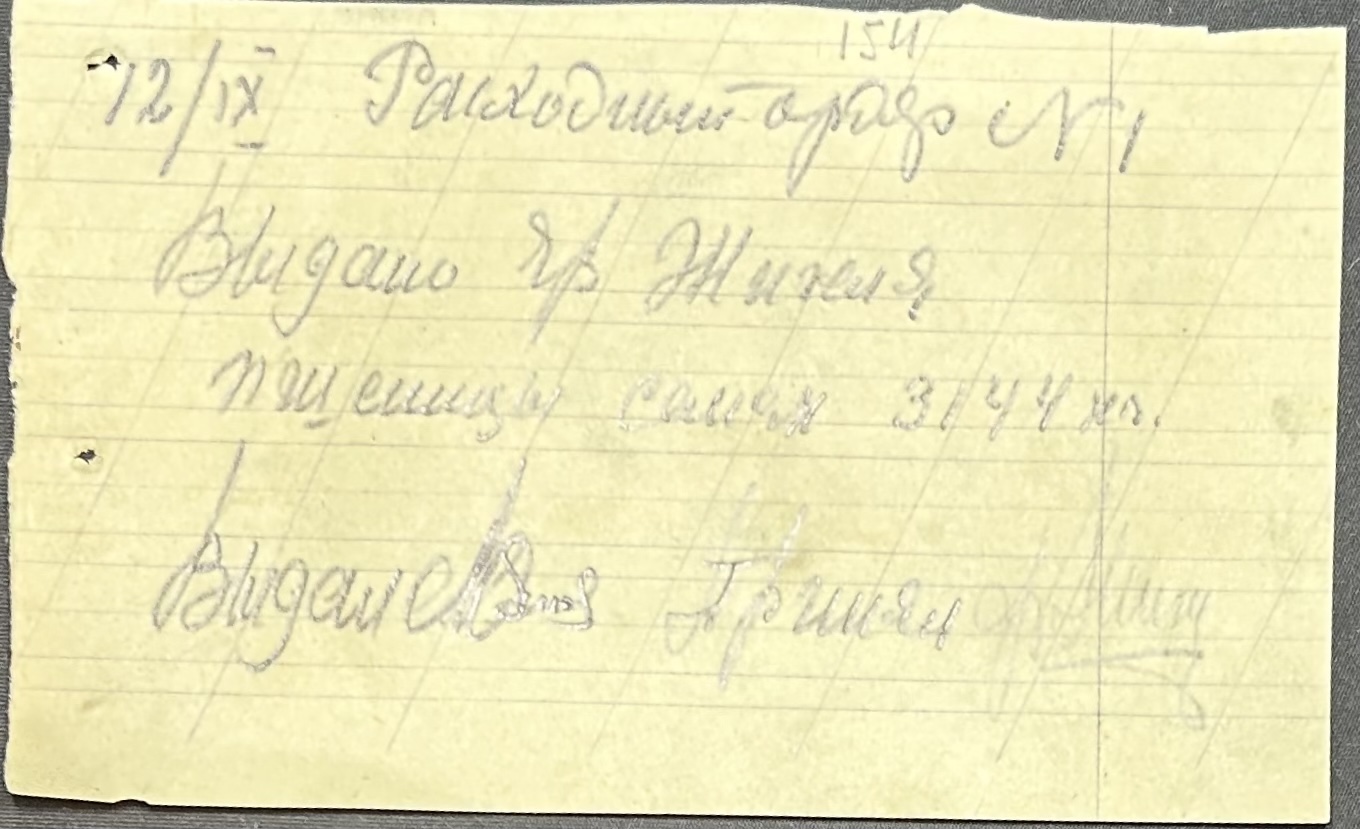 154
12/IX Расходный ордер N 1
Выдано гр Жителя
пшеницы семян 3144 кг.
Выдал Принял